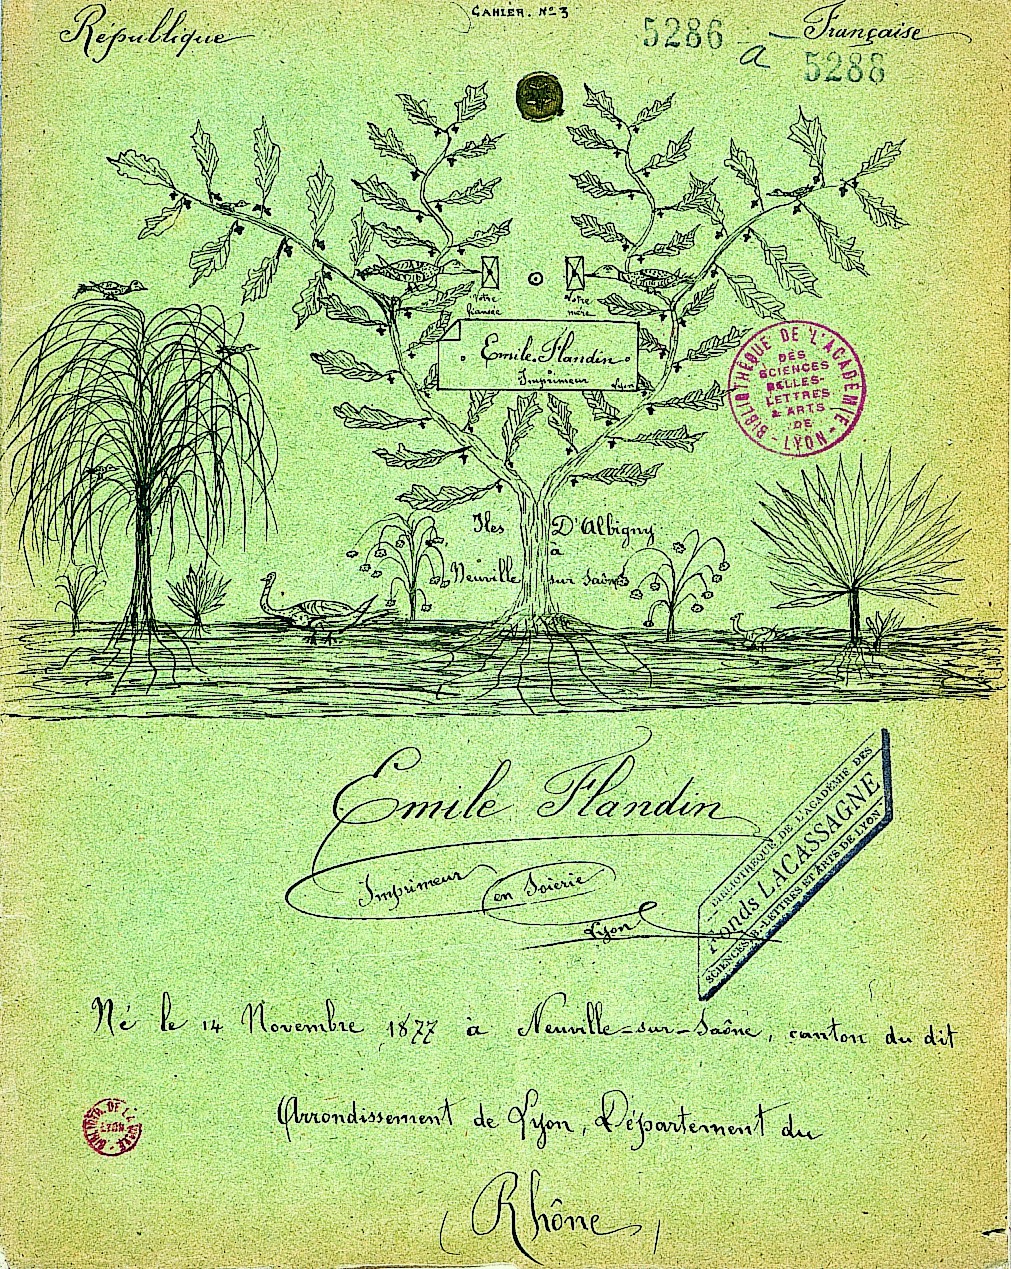 CAHIER. Nº 3
République
Française
5286
a
5288
Votre
fiancée
Votre
mère
Emile Flandin
Imprimeur
Lyon
BIBLIOTHÈQUE DE L'ACADÉMIE
DES
SCIENCES
BELLES-
LETTRES
& ARTS
DE
- LYON -
Iles D'Albigny
à
Neuville sur Saône
Emile Flandin
Imprimeur en Soierie
Lyon
BIBLIOTHÈQUE DE L'ACADÉMIE DES
Fonds LACASSAGNE
SCIENCES, B.-LETTRES ET ARTS DE LYON
Né le 14 Novembre 1877 à Neuville-sur-Saône, canton du dit
Arrondissement de Lyon, Département du
(Rhône)
LYON